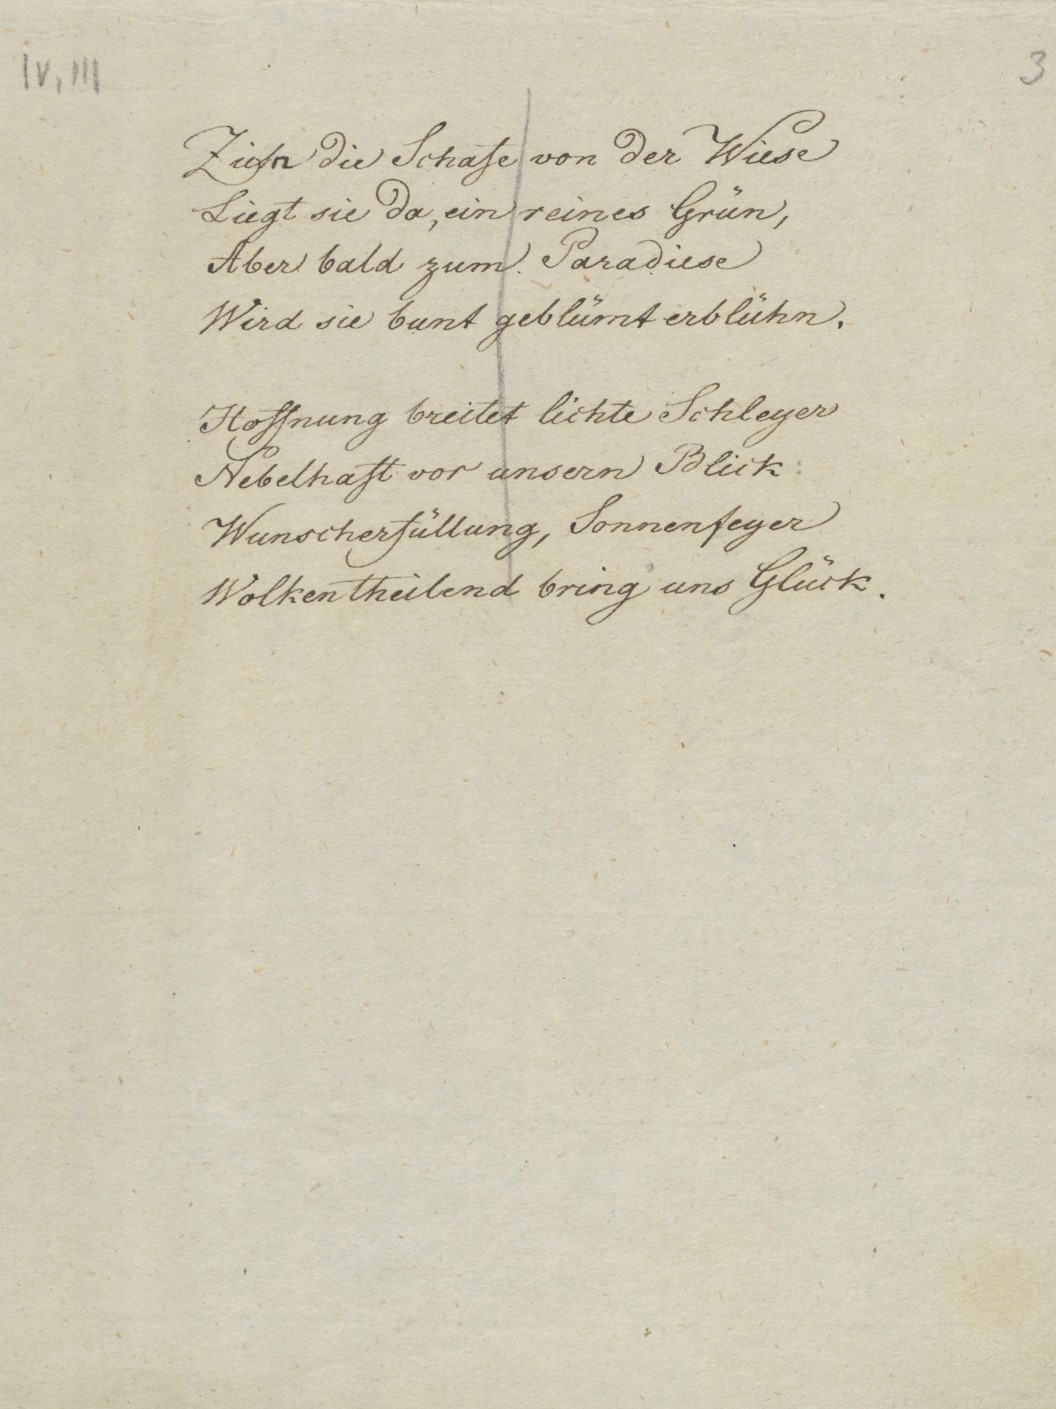 IV, III
3
Ziehn die Schafe von der Wiese
Liegt sie da, ein reines Grün,
Aber bald zum Paradiese
Wird sie bunt geblümt erblühn.
Hoffnung breitet lichte Schleyer
Nebelhaft vor unsern Blick:
Wunscherfüllung, Sonnenfeyer
Wolkentheilend bring uns Glück.